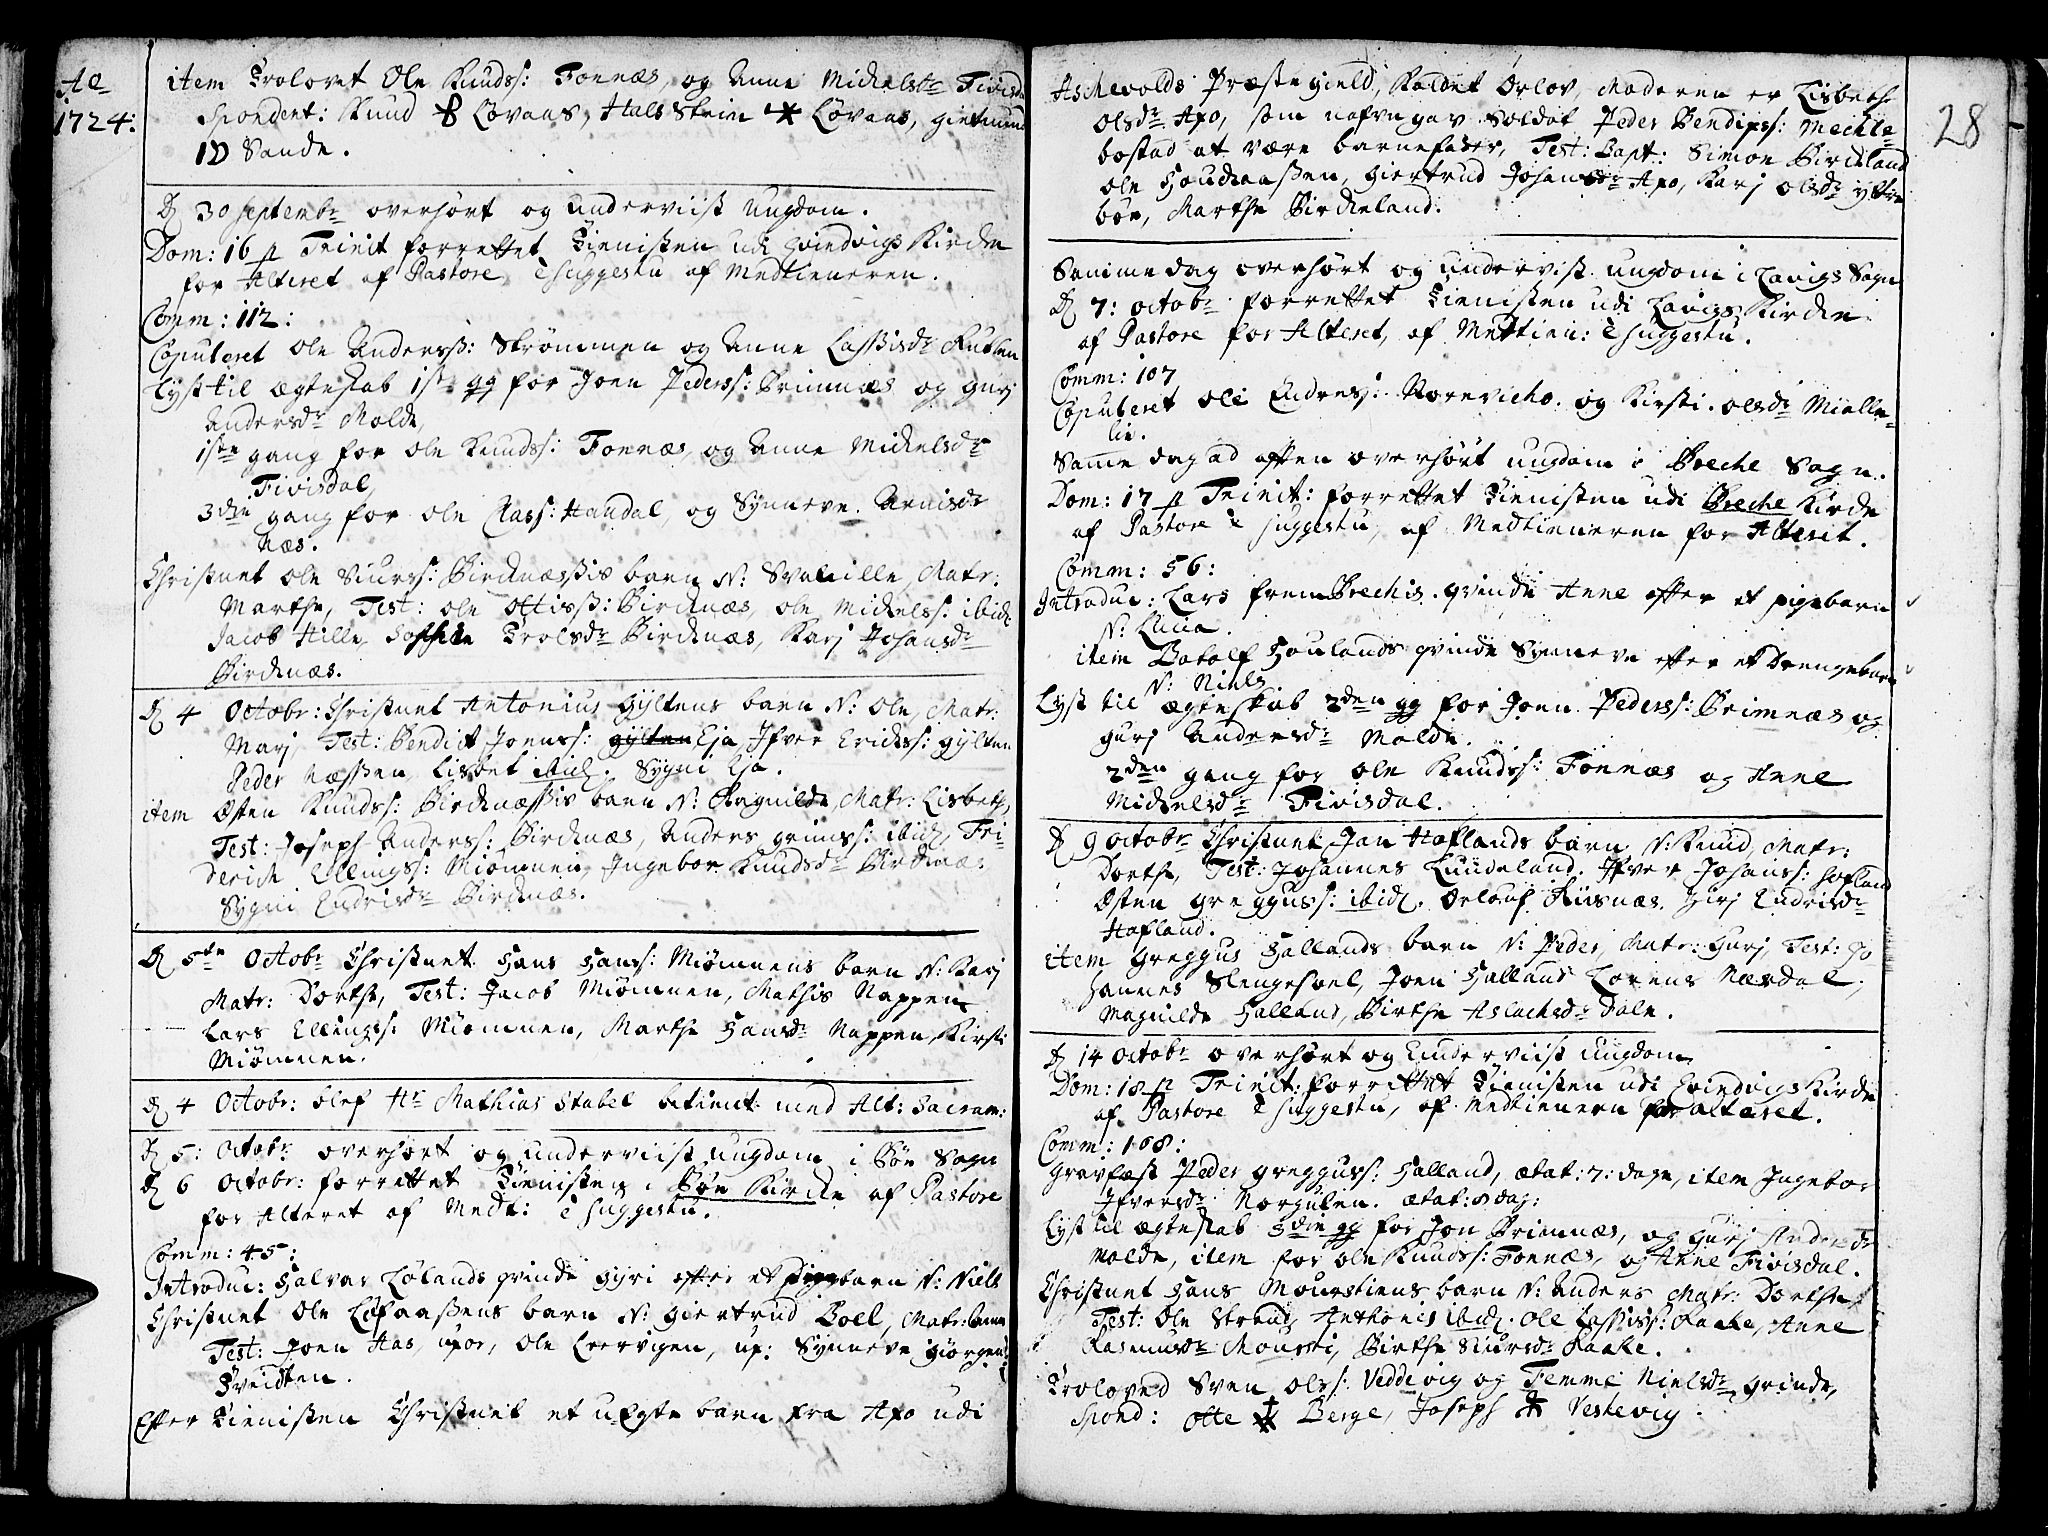 Ao
1724:
item Trolovet Ole Knudss: Fonnæs, og Anne Mickelsdr Fivisdal
Spondent: Knud Løvaas, Hals Strin Løvaas, giertmund
Sande.
D 30 Septembr overhørt og underviist ungdom.
Dom: 16 p Trinit forrettet Tienisten udi Evindvigs Kircke
for Alteret af Pastore, è suggestu af Medtieneren.
Comm: 112:
Copuleret Ole Anderss: Strømmen og Anne Lassisdr Rutlen
Lyst til ægteskab 1ste gg for Joen Pederss: Brimnæs og gurj
Andersdr Molde,
1ste gang for Ole Knudss: Fonnæs, og Anne Mickelsdr
Fivisdal,
3die gang for Ole Class: Haudal, og Synneve Arnisdr
Næs.
Christnet Ole Siurss: Birchnæssis barn N: Matr:
Marthe, Test: Ole Ottiss: Birchnæs, Ole Mickelss: ibid,
Jacob Hille, Trolsdr Birchnæs, Karj Johansdr
Birchnæs.
D 4 Octobr: Christnet Antonius Gyltens barn N: Ole, Matr:
Marj, Test: Bendict Jonss: Eja, Ifver Erickss: gylten
Peder Næssen, Lisbet ibid. Sygni Eja.
item Østen Knudss: Birchnæssis barn N: Ragnilde, Matr: Lisbeth,
Test: Joseph Anderss: Birchnæs, Anders grimss: ibid, Fri-
derich Ellingss: Miømnen, Ingebor Knudsdr Birchnæs
Sygni Endrisdr Birchnæs.
D 5te Octobr Christnet Hans Hanss: Miømnens barn N: Karj
Matr: Dorthe, Test: Jacob Miømnen, Mathis Nappen
Lars Ellingss: Miømnen, Marthe Hansdr Nappen, Kirsti
Miømnen.
D 4 Octobr: blef Hr Mathias Stabel betient med Alt: Sacram:
D 5: Octobr overhørt og underviist ungdom i Bøe Sogn
D 6 Octobr: forrettet Tienisten i Bøe Kircke af Pastore
for Alteret af Medt: è suggestu.
Comm: 45:
Introduc: Halvar Lølands qvinde Gyri efter et barn N: Niels
Christnet Ole barn N: Giertrud Boel, Matr: Anne
Test: Joen Aas, Ole Leervigen, Synneve
Efter Tienisten Christnet et uEgte barn fra Apo udi
Aschevolds Præstegield, kaldet Orlov, Moderen er Lisbethe
Olsdr Apo, som nafngav Soldat Peder Bendixs: Mechle-
bostad at være barnefader, Test: Bapt: Simon Birckeland
Ole giertrud Johansdr Apo, Karj Olsdr Yttre
bøe, Marthe Birckeland.
Samme dag overhørt og undervist ungdom i Lavigs Sogn
D 7: octobr forrettet Tienisten udi Lavigs Kircke
af Pastore for Alteret, af Medtien: è suggestu.
Comm: 107
Copuleret Ole Endres: Nornvicho og Kirsti Olsdr Mielle-
lie.
Same dag ad aften overhørt ungdom i Breche Sogn.
Dom: 17 p Trinit: forrettet Tienisten udi Breche Kirche
af Pastore è suggestu, af Medtieneren for Alterit.
Comm: 56:
Introduc: Lars frem Brechis qvinde Anne efter et pigebarn
N: Lucia.
item Botolf Houlands qvinde Synneve efter et Drengebarn
N: Niels
Lyst til ægteskab 2den gg for Joen Pederss: Brimnæs og
gurj Andersdr Molde.
2den gang for Ole Knudss: Fonnæs og Anne
Mickelsdr Fivisdal.
D 9 octobr Christnet Jan Haflands barn N: Knud, Matr:
Dorthe, Test: Johannes Lundeland, Ifver Johanss: Hofland
Østen Greggurss: ibid. Orlouf Riisnæs, Gurj Endrisdr
Hafland.
item Greggus Hallands barn N: Peder, Matr: Gurj, Test: Jo-
hannes Slengesoel, Joen Halland Lorens Nærdal,
Magnilde Halland, Birthe Aslachsdr Dale.
D 14 octobr overhørt og underviist ungdom
Dom: 18 p Trinit: forrettet Tienisten udi Evindvigs Kircke
af Pastore è suggestu, af Medtienern for alteret.
Comm: 108:
Gravfæst Peder Greggurss: Halland, ætat: 7: dage, item Ingebor
Ifversdr Norgulen. ætat: 8 dag:
Lyst til ægteskab 3die gg for Jon Brimnæs, og Gurj Andersdr
Molde, item for Ole Knudss: Fonnæs, og Anne Fivisdal.
Christnet Hans Mourstiens barn N: Anders Matr: Dorthe,
Test: Ole Strand, Anthonis ibid. Ole Lassiss: Raake, Anne
Rasmusdr Moursti, Birthe Siursdr Raake.
Troloved Sven Olss: Veddevig og Femme Nielsdr Grinde,
Spond: Otte Berge, Joseph Veskevig
28